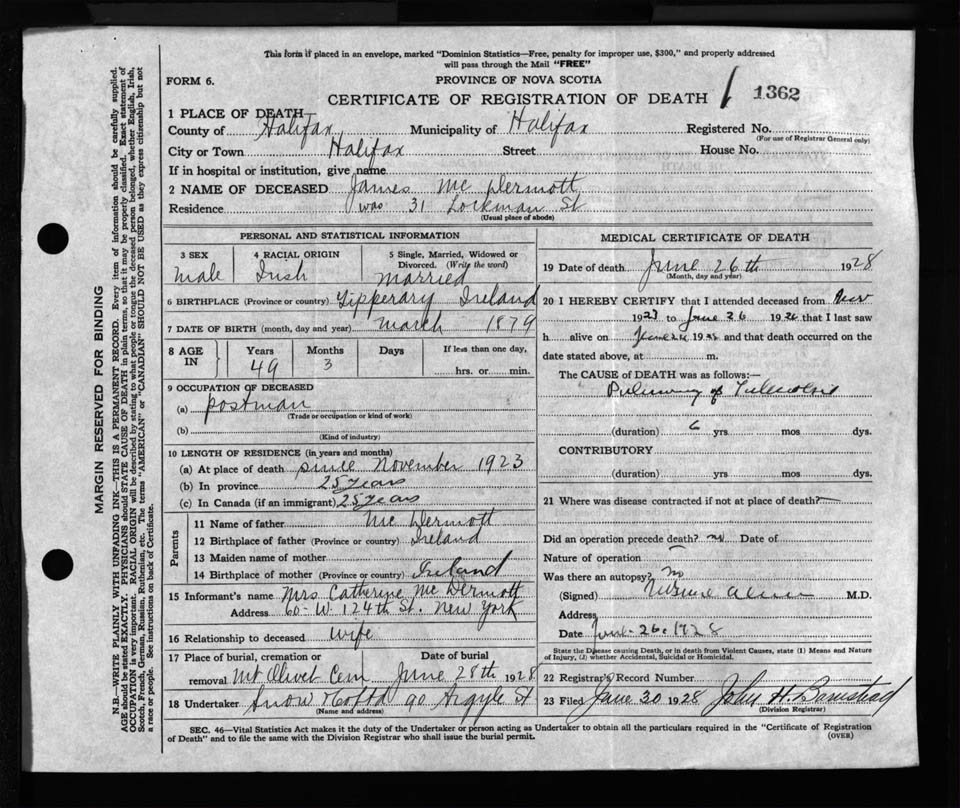 This form if placed in an envelope, marked "Dominion Statistics—Free, penalty for improper use, $300," and properly addressed
will pass through the Mail "FREE"
FORM 6.
PROVINCE OF NOVA SCOTIA
CERTIFICATE OF REGISTRATION OF DEATH
1362
1 PLACE OF DEATH
County of Halifax Municipality of Halifax Registered No.
(For use of Registrar General only)
City or Town Halifax Street House No.
If in hospital or institution, give name
2 NAME OF DECEASED James McDermott
Residence was 31 Lockman St
(Usual place of abode)
PERSONAL AND STATISTICAL INFORMATION
3 SEX
male
4 RACIAL ORIGIN
Irish
5 Single, Married, Widowed or
Divorced. (Write the word)
married
6 BIRTHPLACE (Province or country) Tipperary Ireland
7 DATE OF BIRTH (month, day and year) march 1879
8 AGE IN
Years
49
Months
3
Days
If less than one day,
hrs. or min.
9 OCCUPATION OF DECEASED
(a) postman
(Trade or occupation or kind of work)
(b)
(Kind of industry)
10 LENGTH OF RESIDENCE (in years and months)
(a) At place of death since November 1923
(b) In province 25 years
(c) In Canada (if an immigrant) 25 years
Parents
11 Name of father McDermott
12 Birthplace of father (Province or country) Ireland
13 Maiden name of mother
14 Birthplace of mother (Province or country) Ireland
15 Informant's name Mrs Catherine McDermott
Address 60-W. 124th St. New York
16 Relationship to deceased wife
17 Place of burial, cremation or Date of burial
removal Mt Olivet Cem June 28th 1928
18 Undertaker Snow & Co Ltd 90 Argyle St
(Name and address)
MEDICAL CERTIFICATE OF DEATH
19 Date of death June 26th 1928
(Month, day and year)
20 I HEREBY CERTIFY that I attended deceased from
192 to June 26 192 that I last saw
h alive on 19 and that death occurred on the
date stated above, at m.
The CAUSE of DEATH was as follows:—
(duration) 6 yrs mos dys.
CONTRIBUTORY
(duration) yrs mos dys.
21 Where was disease contracted if not at place of death?
Did an operation precede death? no Date of
Nature of operation
Was there an autopsy? no
(Signed) M.D.
Address
Date June 26. 1928
State the Disease causing Death, or in death from Violent Causes, state (1) Means and Nature
of Injury, (2) whether Accidental, Suicidal or Homicidal.
22 Registrar's Record Number
23 Filed June 30 1928 John H. Barnstead
(Division Registrar)
SEC. 46—Vital Statistics Act makes it the duty of the Undertaker or person acting as Undertaker to obtain all the particulars required in the "Certificate of Registration
of Death" and to file the same with the Division Registrar who shall issue the burial permit.
(OVER)
MARGIN RESERVED FOR BINDING
N.B.—WRITE PLAINLY WITH UNFADING INK—THIS IS A PERMANENT RECORD. Every item of information should be carefully supplied.
AGE should be stated EXACTLY. PHYSICIANS should STATE CAUSE OF DEATH in plain terms, so that it may be properly classified. Exact statement of
OCCUPATION is very important. RACIAL ORIGIN will be described by stating to what people or tongue the deceased person belonged, whether English, Irish,
Scotch, French, German, Russian, Ruthenian, etc. The terms "AMERICAN" or "CANADIAN" SHOULD NOT BE USED as they express citizenship but not
a race or people. See instructions on back of Certificate.